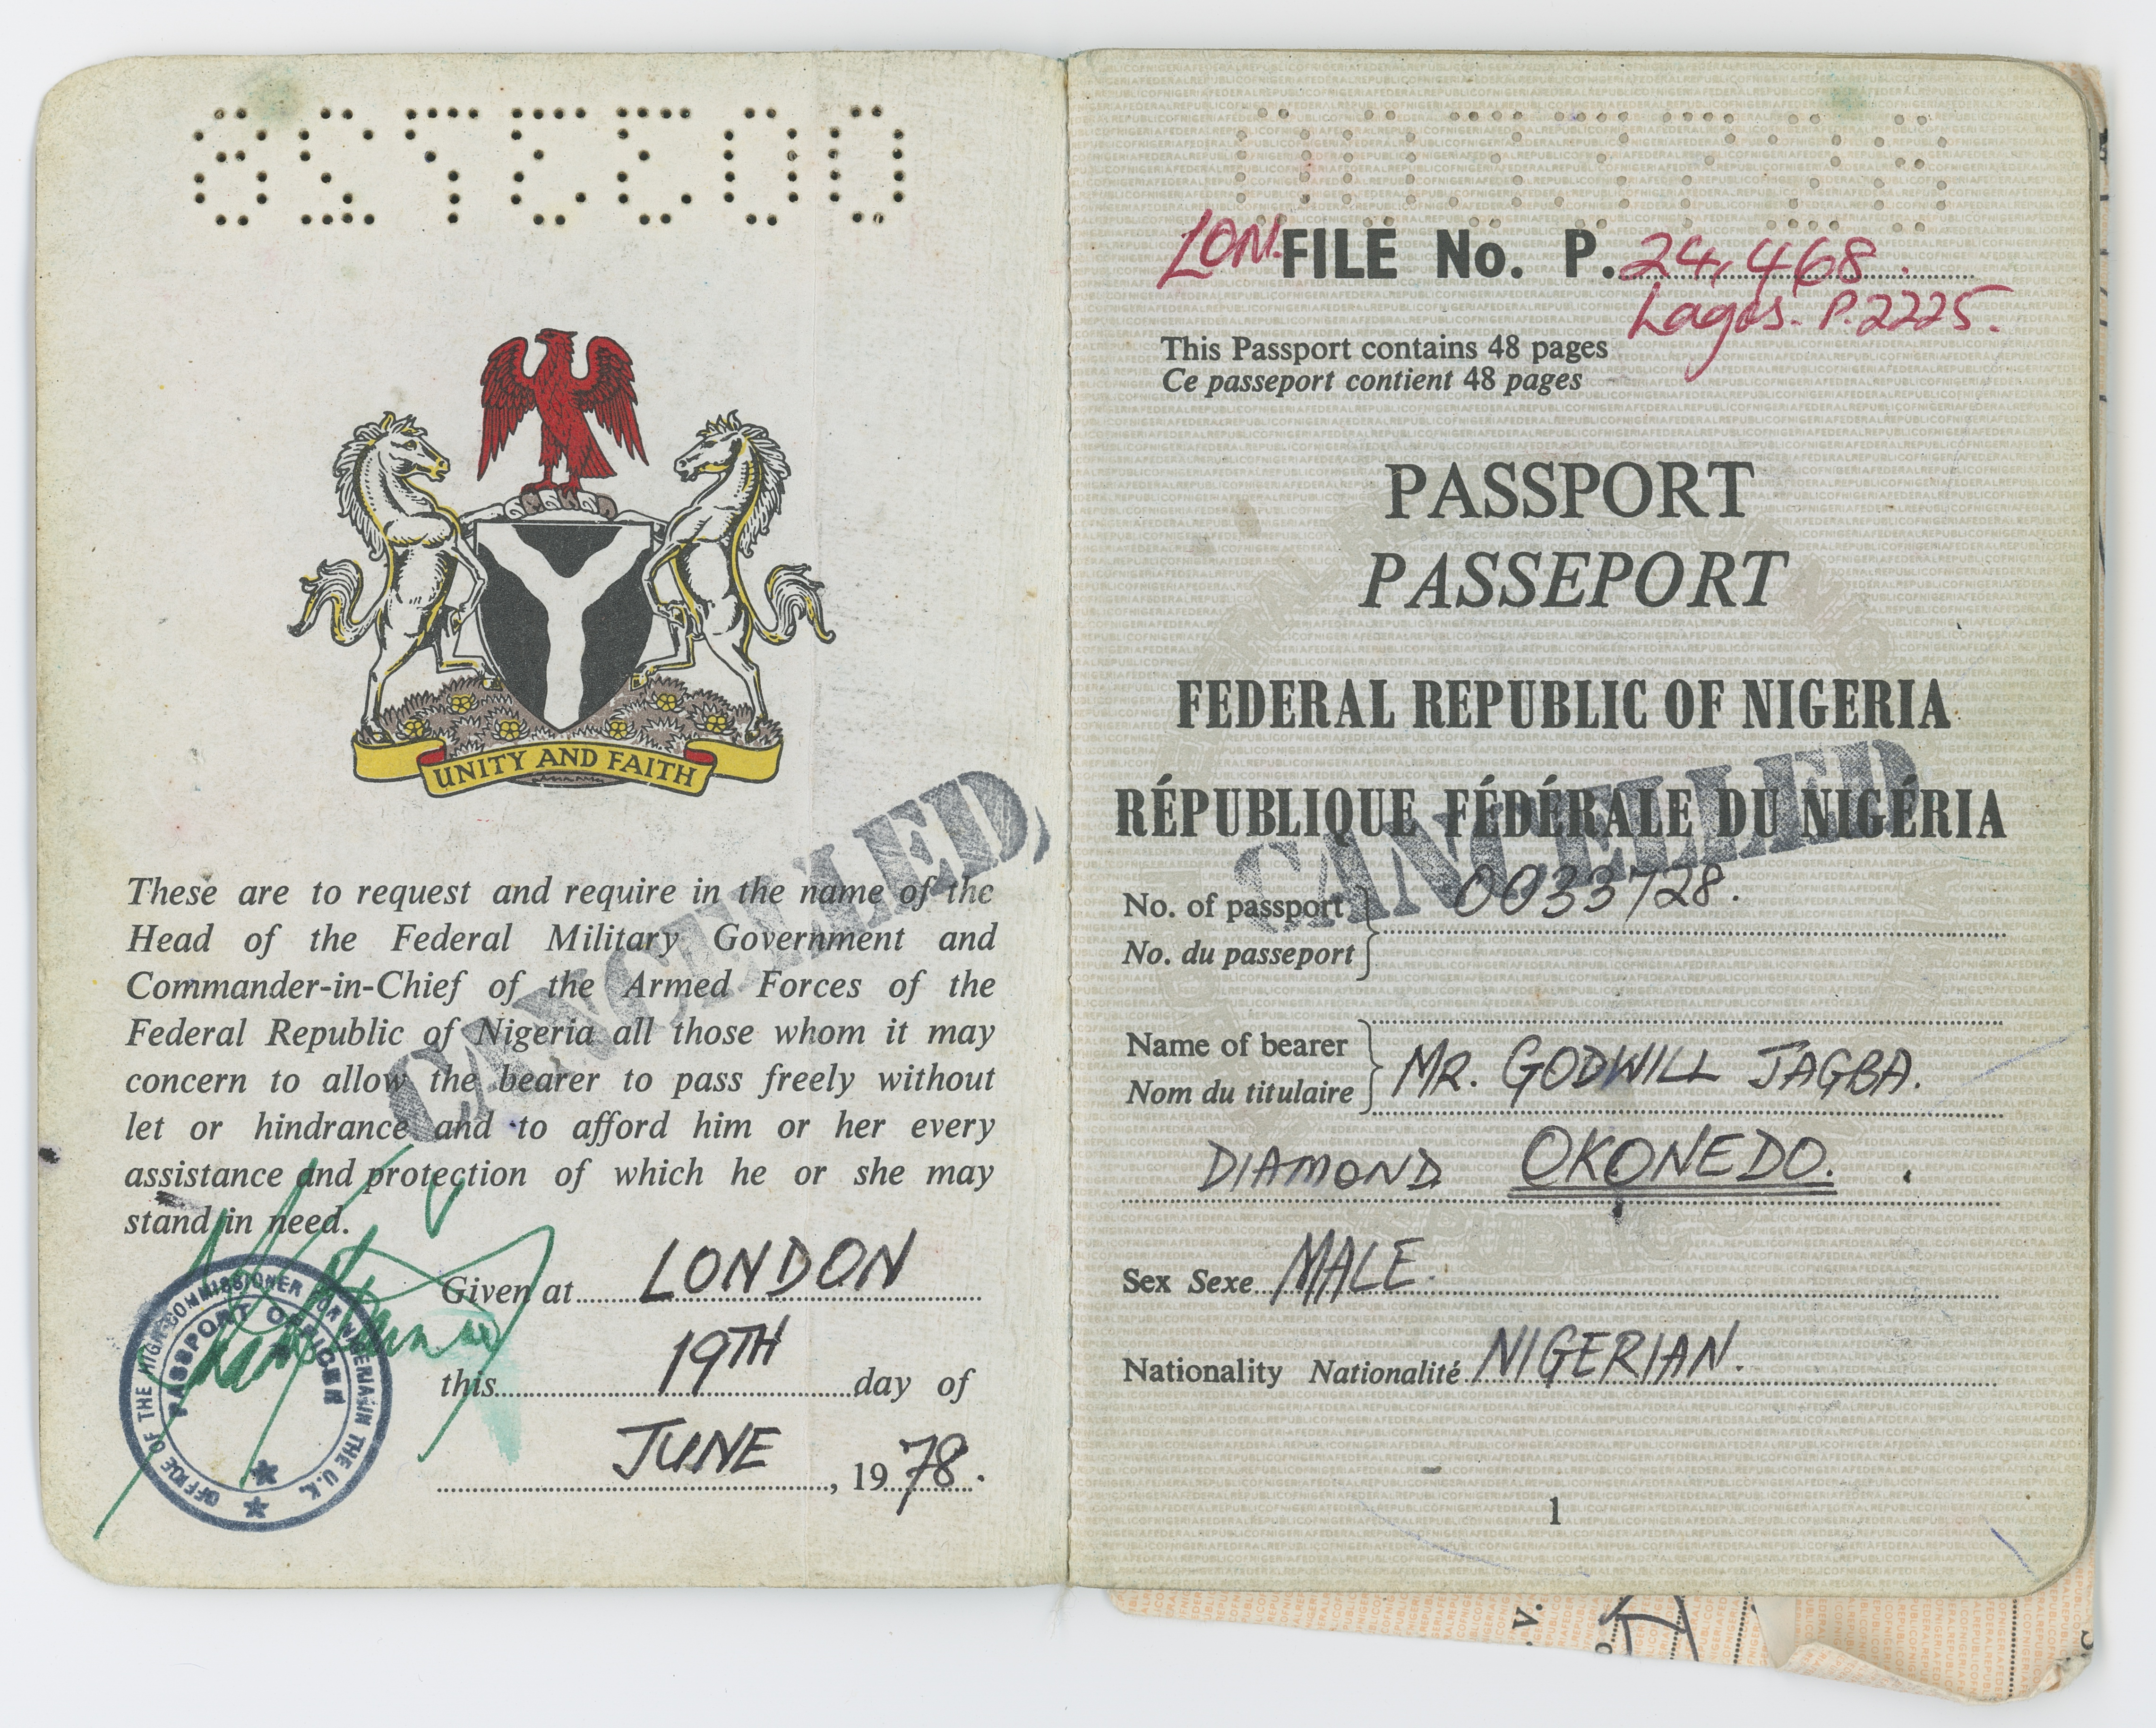 UNITY AND FAITH
CANCELLED
These are to request and require in the name of the
Head of the Federal Military Government and
Commander-in-Chief of the Armed Forces of the
Federal Republic of Nigeria all those whom it may
concern to allow the bearer to pass freely without
let or hindrance and to afford him or her every
assistance and protection of which he or she may
stand in need.
Given at LONDON
this 19TH day of
JUNE, 1978.
OFFICE OF THE HIGH COMMISSIONER FOR NIGERIA IN THE U.K.
PASSPORT OFFICER
LON. FILE No. P. 24,468.
Lagos. P.2225.
This Passport contains 48 pages
Ce passeport contient 48 pages
PASSPORT
PASSEPORT
FEDERAL REPUBLIC OF NIGERIA
RÉPUBLIQUE FÉDÉRALE DU NIGÉRIA
CANCELLED
No. of passport 0033728.
No. du passeport
Name of bearer MR. GODWILL JAGBA.
Nom du titulaire
DIAMOND OKONEDO.
Sex Sexe MALE.
Nationality Nationalité NIGERIAN.
1